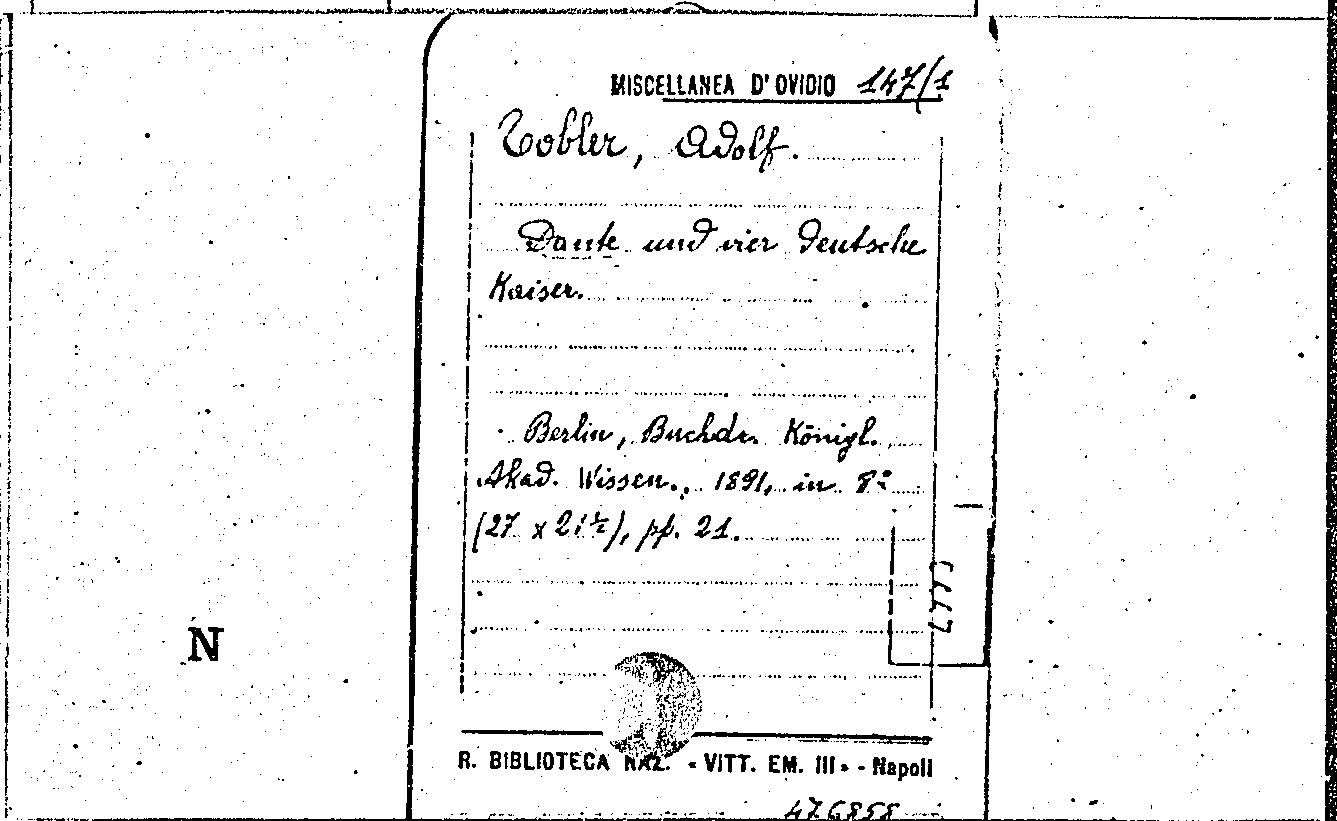 MISCELLANEA D'OVIDIO 147/1
Tobler, Adolf.
Dante und vier deutsche
Kaiser.
Berlin, Buchdr. Königl.
Akad. Wissen., 1891, in 8º
(27 x 21½), pp. 21.
N
R. BIBLIOTECA NAZ. « VITT. EM. III » - Napoli
476858